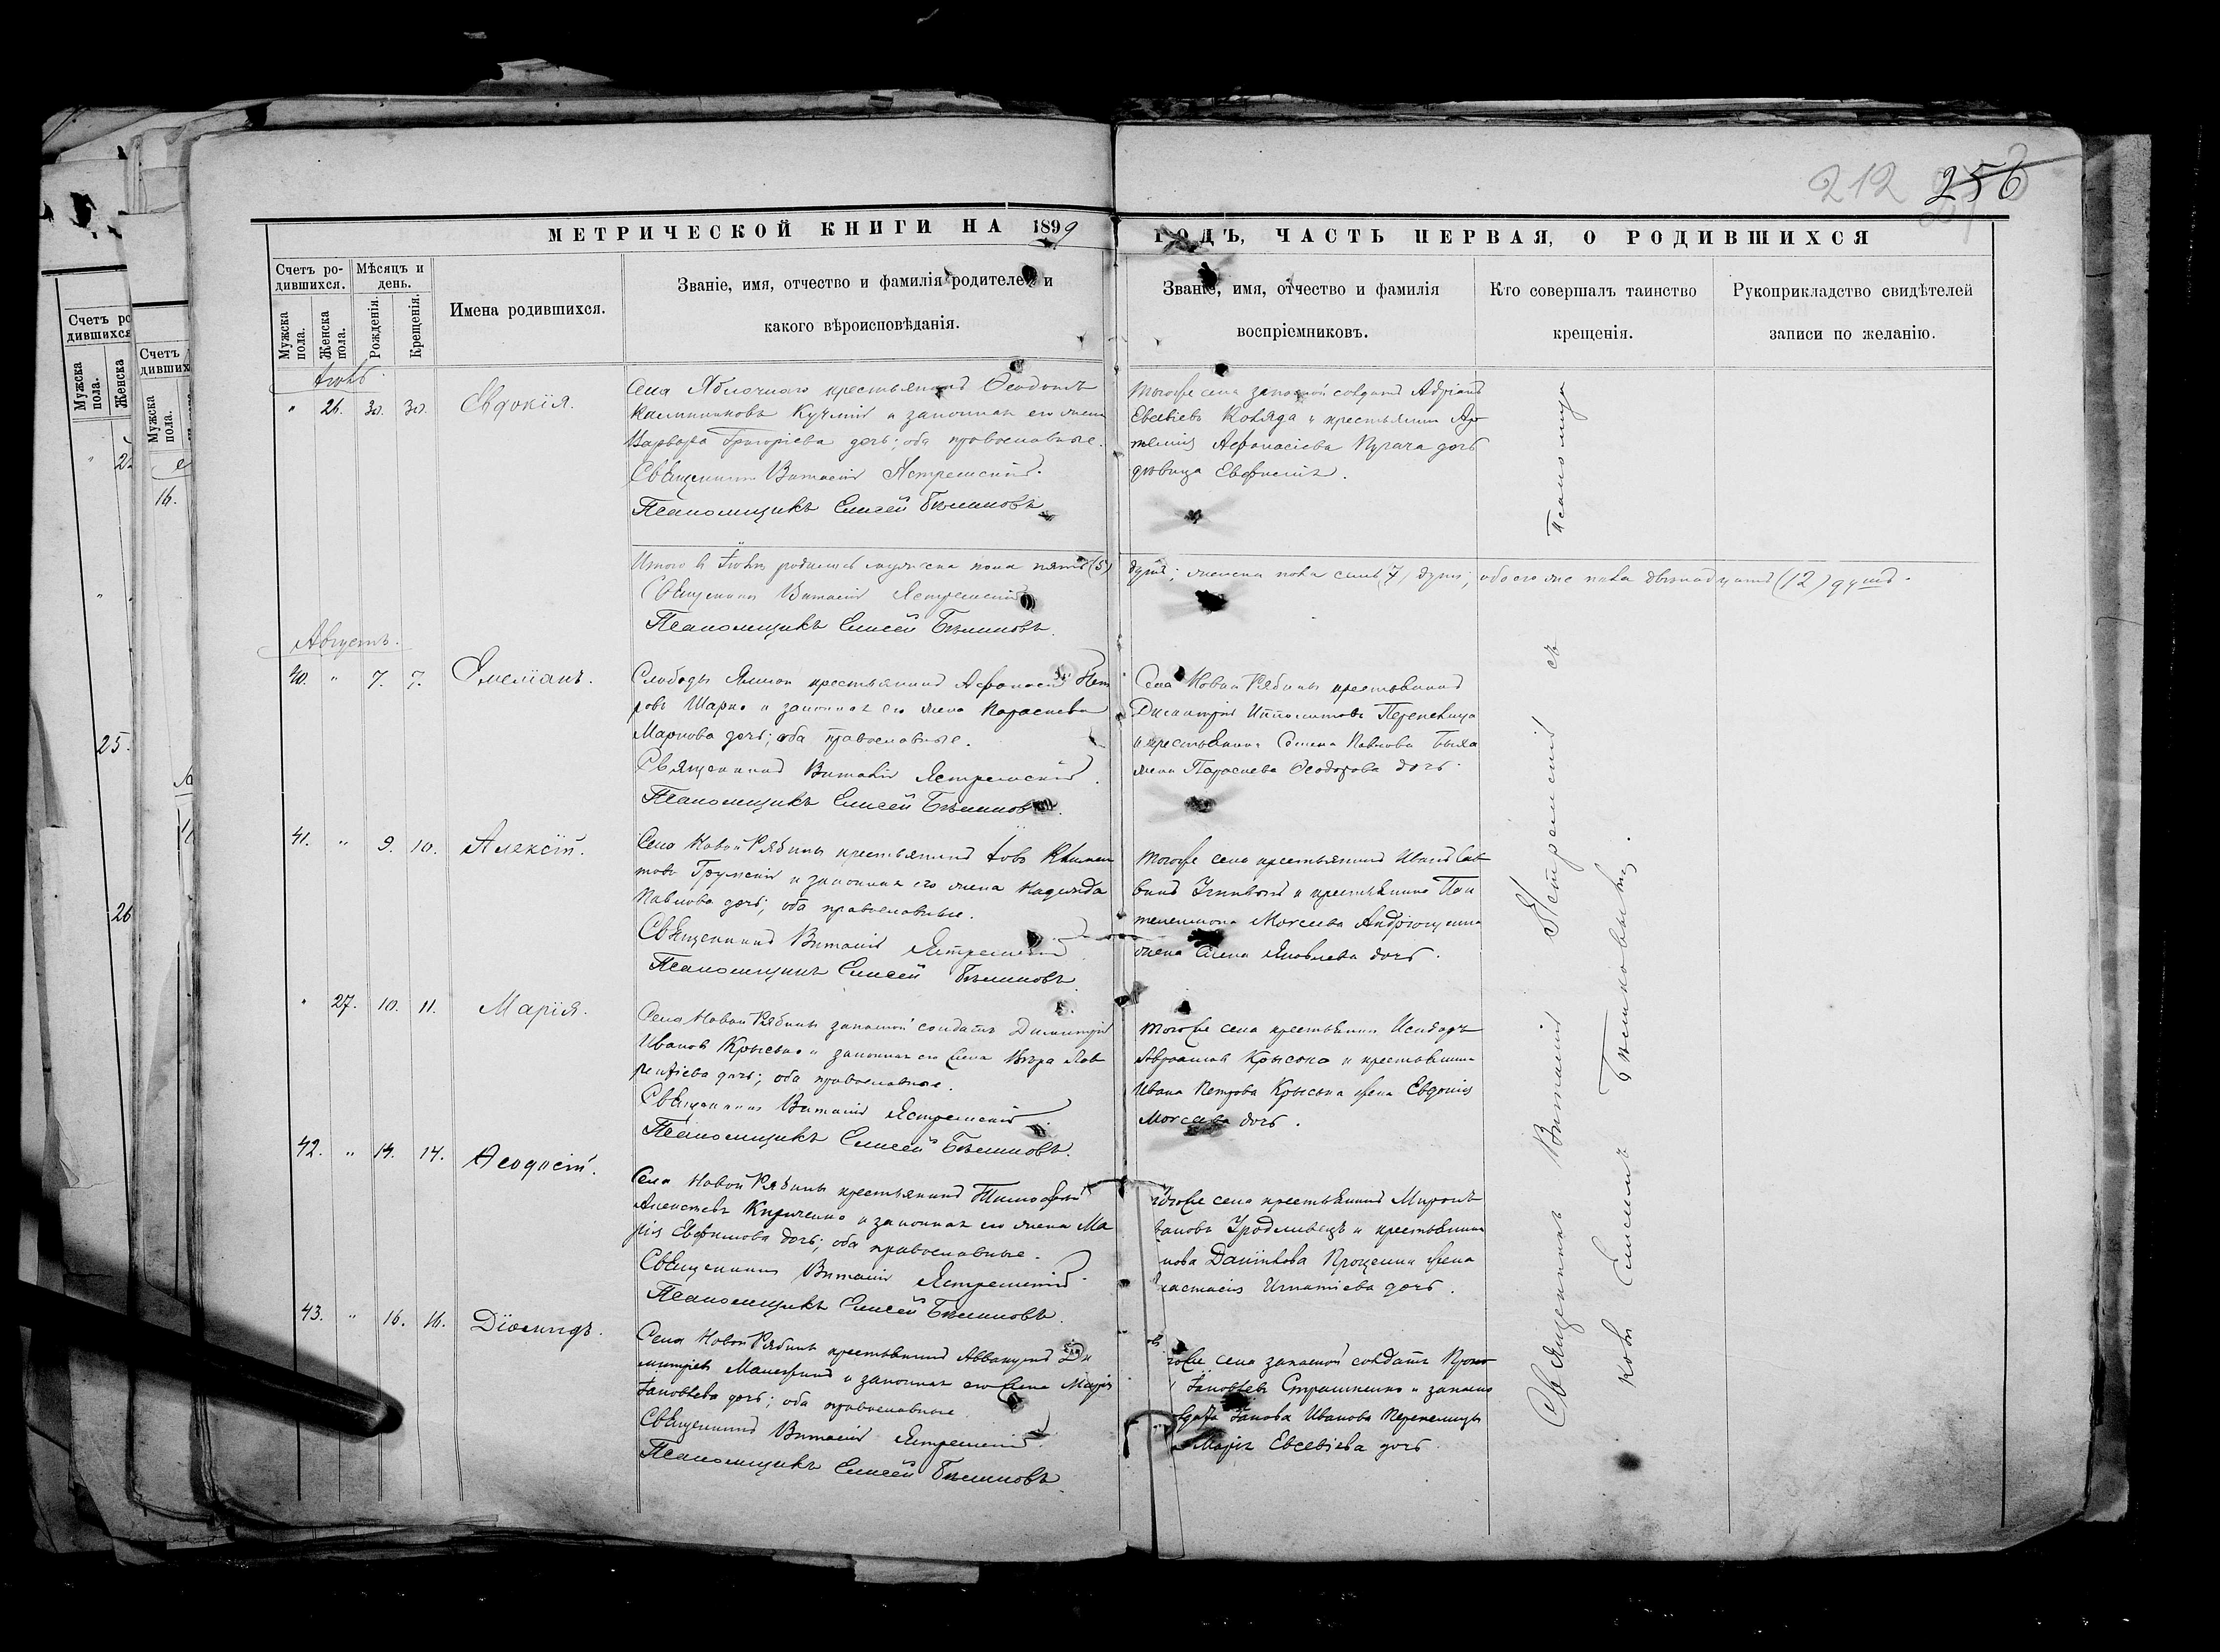 212 256
МЕТРИЧЕСКОЙ КНИГИ НА 1899
ГОДЪ, ЧАСТЬ ПЕРВАЯ, О РОДИВШИХСЯ
Счетъ ро-
дившихся.
Мужска
пола.
Женска
пола.
Мѣсяцъ и
день.
Рожденія.
Крещенія.
Имена родившихся.
Званіе, имя, отчество и фамилія родителей и
какого вѣроисповѣданія.
Званіе, имя, отчество и фамилія
воспріемниковъ.
Кто совершалъ таинство
крещенія.
Рукоприкладство свидѣтелей
записи по желанію.
" 26. 30. 30. Евдокія.
Села Яблочнаго крестьянинъ Ѳеодотъ
Калинниковъ и законная его жена
Варвара Григоріева дочь; оба православные.
Священникъ Виталій Ястремскій.
Псаломщикъ Елисей
тогоже села запасной солдатъ Адріанъ
Евсевіевъ Коляда и крестьянина Ар
темія Аѳанасіева Пугача дочь
дѣвица Евфимія.
Итого в Іюлѣ родилось мужска пола пять (5)
душъ; женска пола семь (7) душъ; обоего же пола двѣнадцать (12) душъ.
Священникъ Виталій Ястремскій
Псаломщикъ Елисей
Августъ.
40. " 7. 7. Емеліанъ.
Слободы крестьянинъ Аѳанасій Пет
ровъ Шарко и законная его жена Параскева
Маркова дочь; оба православные.
Священникъ Виталій Ястремскій.
Псаломщикъ Елисей
Села Новой Рябины крестьянинъ
Димитрій Ипполитовъ Перепелица
и крестьянина Павлова
жена Параскева Ѳеодорова дочь.
41. " 9. 10. Алексій.
Села Новой Рябины крестьянинъ Іовъ Климен
товъ и законная его жена Надежда
Павлова дочь; оба православные.
Священникъ Виталій Ястремскій
Псаломщикъ Елисей
тогоже села крестьянинъ Иванъ Сав
винъ и крестьянина Пан
телеимона Моисеева Андрющенка
жена Елена Яковлева дочь.
" 27. 10. 11. Марія.
Села Новой Рябины запасной солдатъ Димитрій
Ивановъ Крысько и законная его жена Вѣра Лав
рентіева дочь; оба православные.
Священникъ Виталій Ястремскій.
Псаломщикъ Елисей
тогоже села крестьянинъ Исидоръ
Авраамовъ Крысько и крестьянина
Ивана Петрова Крыська жена Евдокія
Моисеева дочь.
42. " 14. 14. Ѳеодосій.
Села Новой Рябины крестьянинъ Тимоѳей
Алексѣевъ Кириченко и законная его жена Ма
рія Евфимова дочь; оба православные.
Священникъ Виталій Ястремскій.
Псаломщикъ Елисей
тогоже села крестьянинъ Миронъ
и крестьянина
Даніилова Прощенка жена
Игнатіева дочь.
43. " 16. 16. Діомидъ.
Села Новой Рябины крестьянинъ Аввакумъ Ди
митріевъ и законная его жена Марія
Іаковлева дочь; оба православные.
Священникъ Виталій Ястремскій.
Псаломщикъ Елисей
села запасной солдатъ
Іаковлевъ Страшненко и
Іакова Иванова Перепелицы
Марія Евсевіева дочь.
Священникъ Виталій Ястремскій съ Псаломщи
комъ Елисеемъ